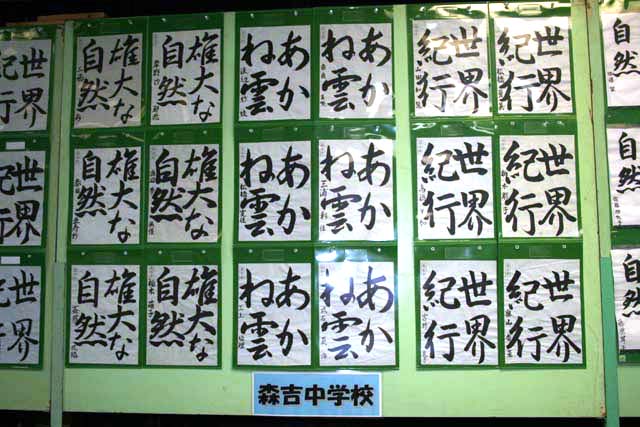 雄大な
自然
雄大な
自然
あか
ね雲
あか
ね雲
世界
紀行
世界
紀行
自然
世界
紀行
雄大な
自然
雄大な
自然
あか
ね雲
あか
ね雲
世界
紀行
世界
紀行
自然
世界
紀行
雄大な
自然
雄大な
自然
あか
ね雲
あか
ね雲
世界
紀行
世界
紀行
自然
世界
紀行
森吉中学校